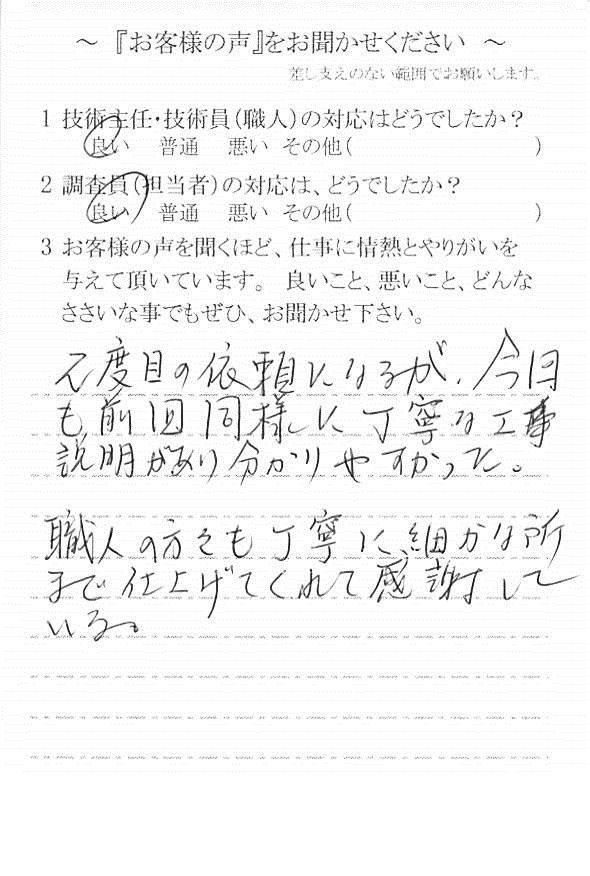 ～『お客様の声』をお聞かせください ～
差し支えのない範囲でお願いします。
1 技術主任・技術員（職人）の対応はどうでしたか？
良い 普通 悪い その他（ ）
2 調査員（担当者）の対応は、どうでしたか？
良い 普通 悪い その他（ ）
3 お客様の声を聞くほど、仕事に情熱とやりがいを
与えて頂いています。 良いこと、悪いこと、どんな
ささいな事でもぜひ、お聞かせ下さい。
度目の依頼になるが、今回
も前回同様に丁寧な工事
説明があり分かりやすかった。
職人の方々も丁寧に、細かな所
まで仕上げてくれて感謝して
いる。